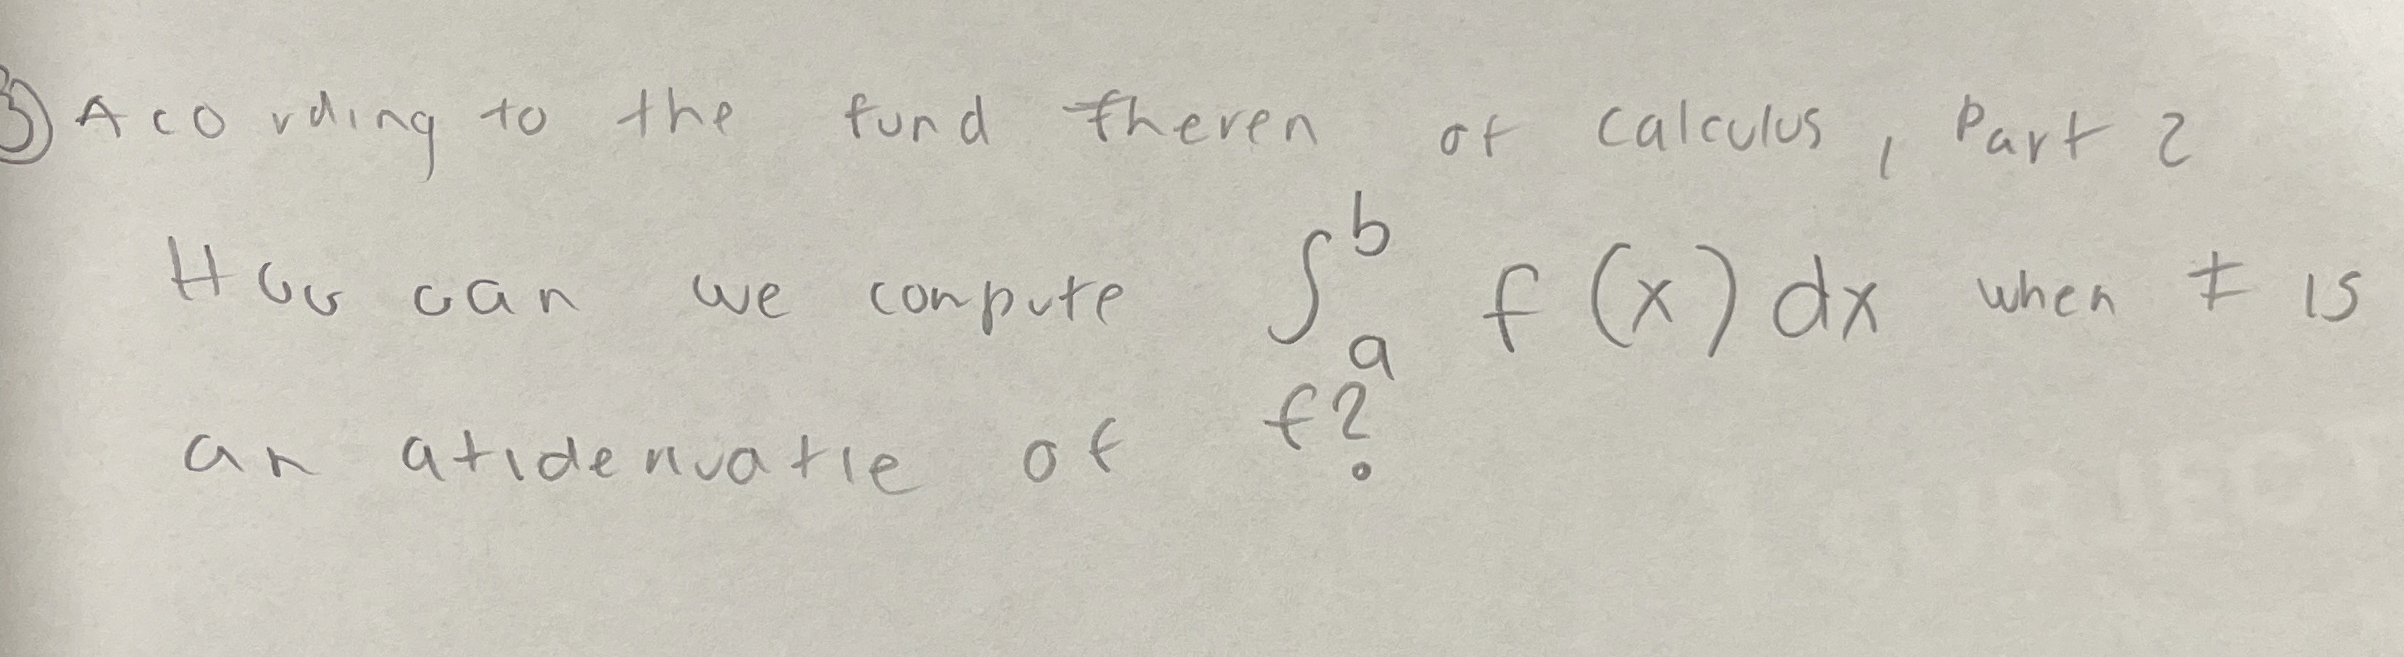 ③ Acording to the fund theren of calculus, Part 2
How can we compute ∫_a^b f(x) dx when F is
an atiderivatie of f?